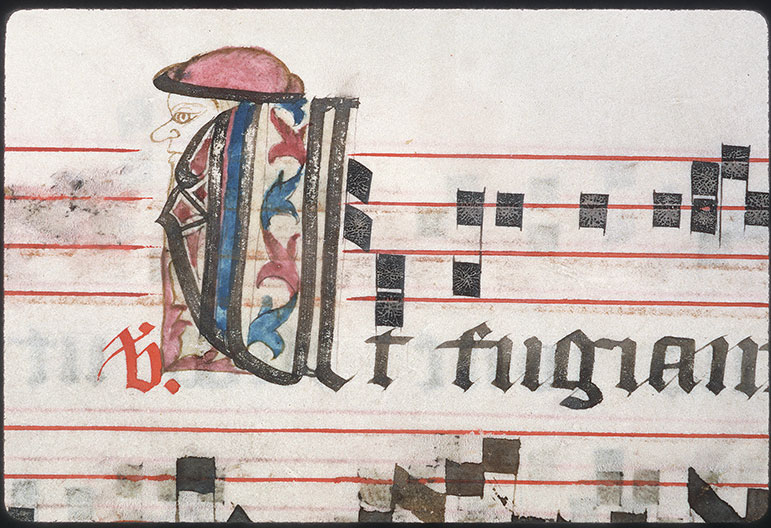 V. Ut fugiam